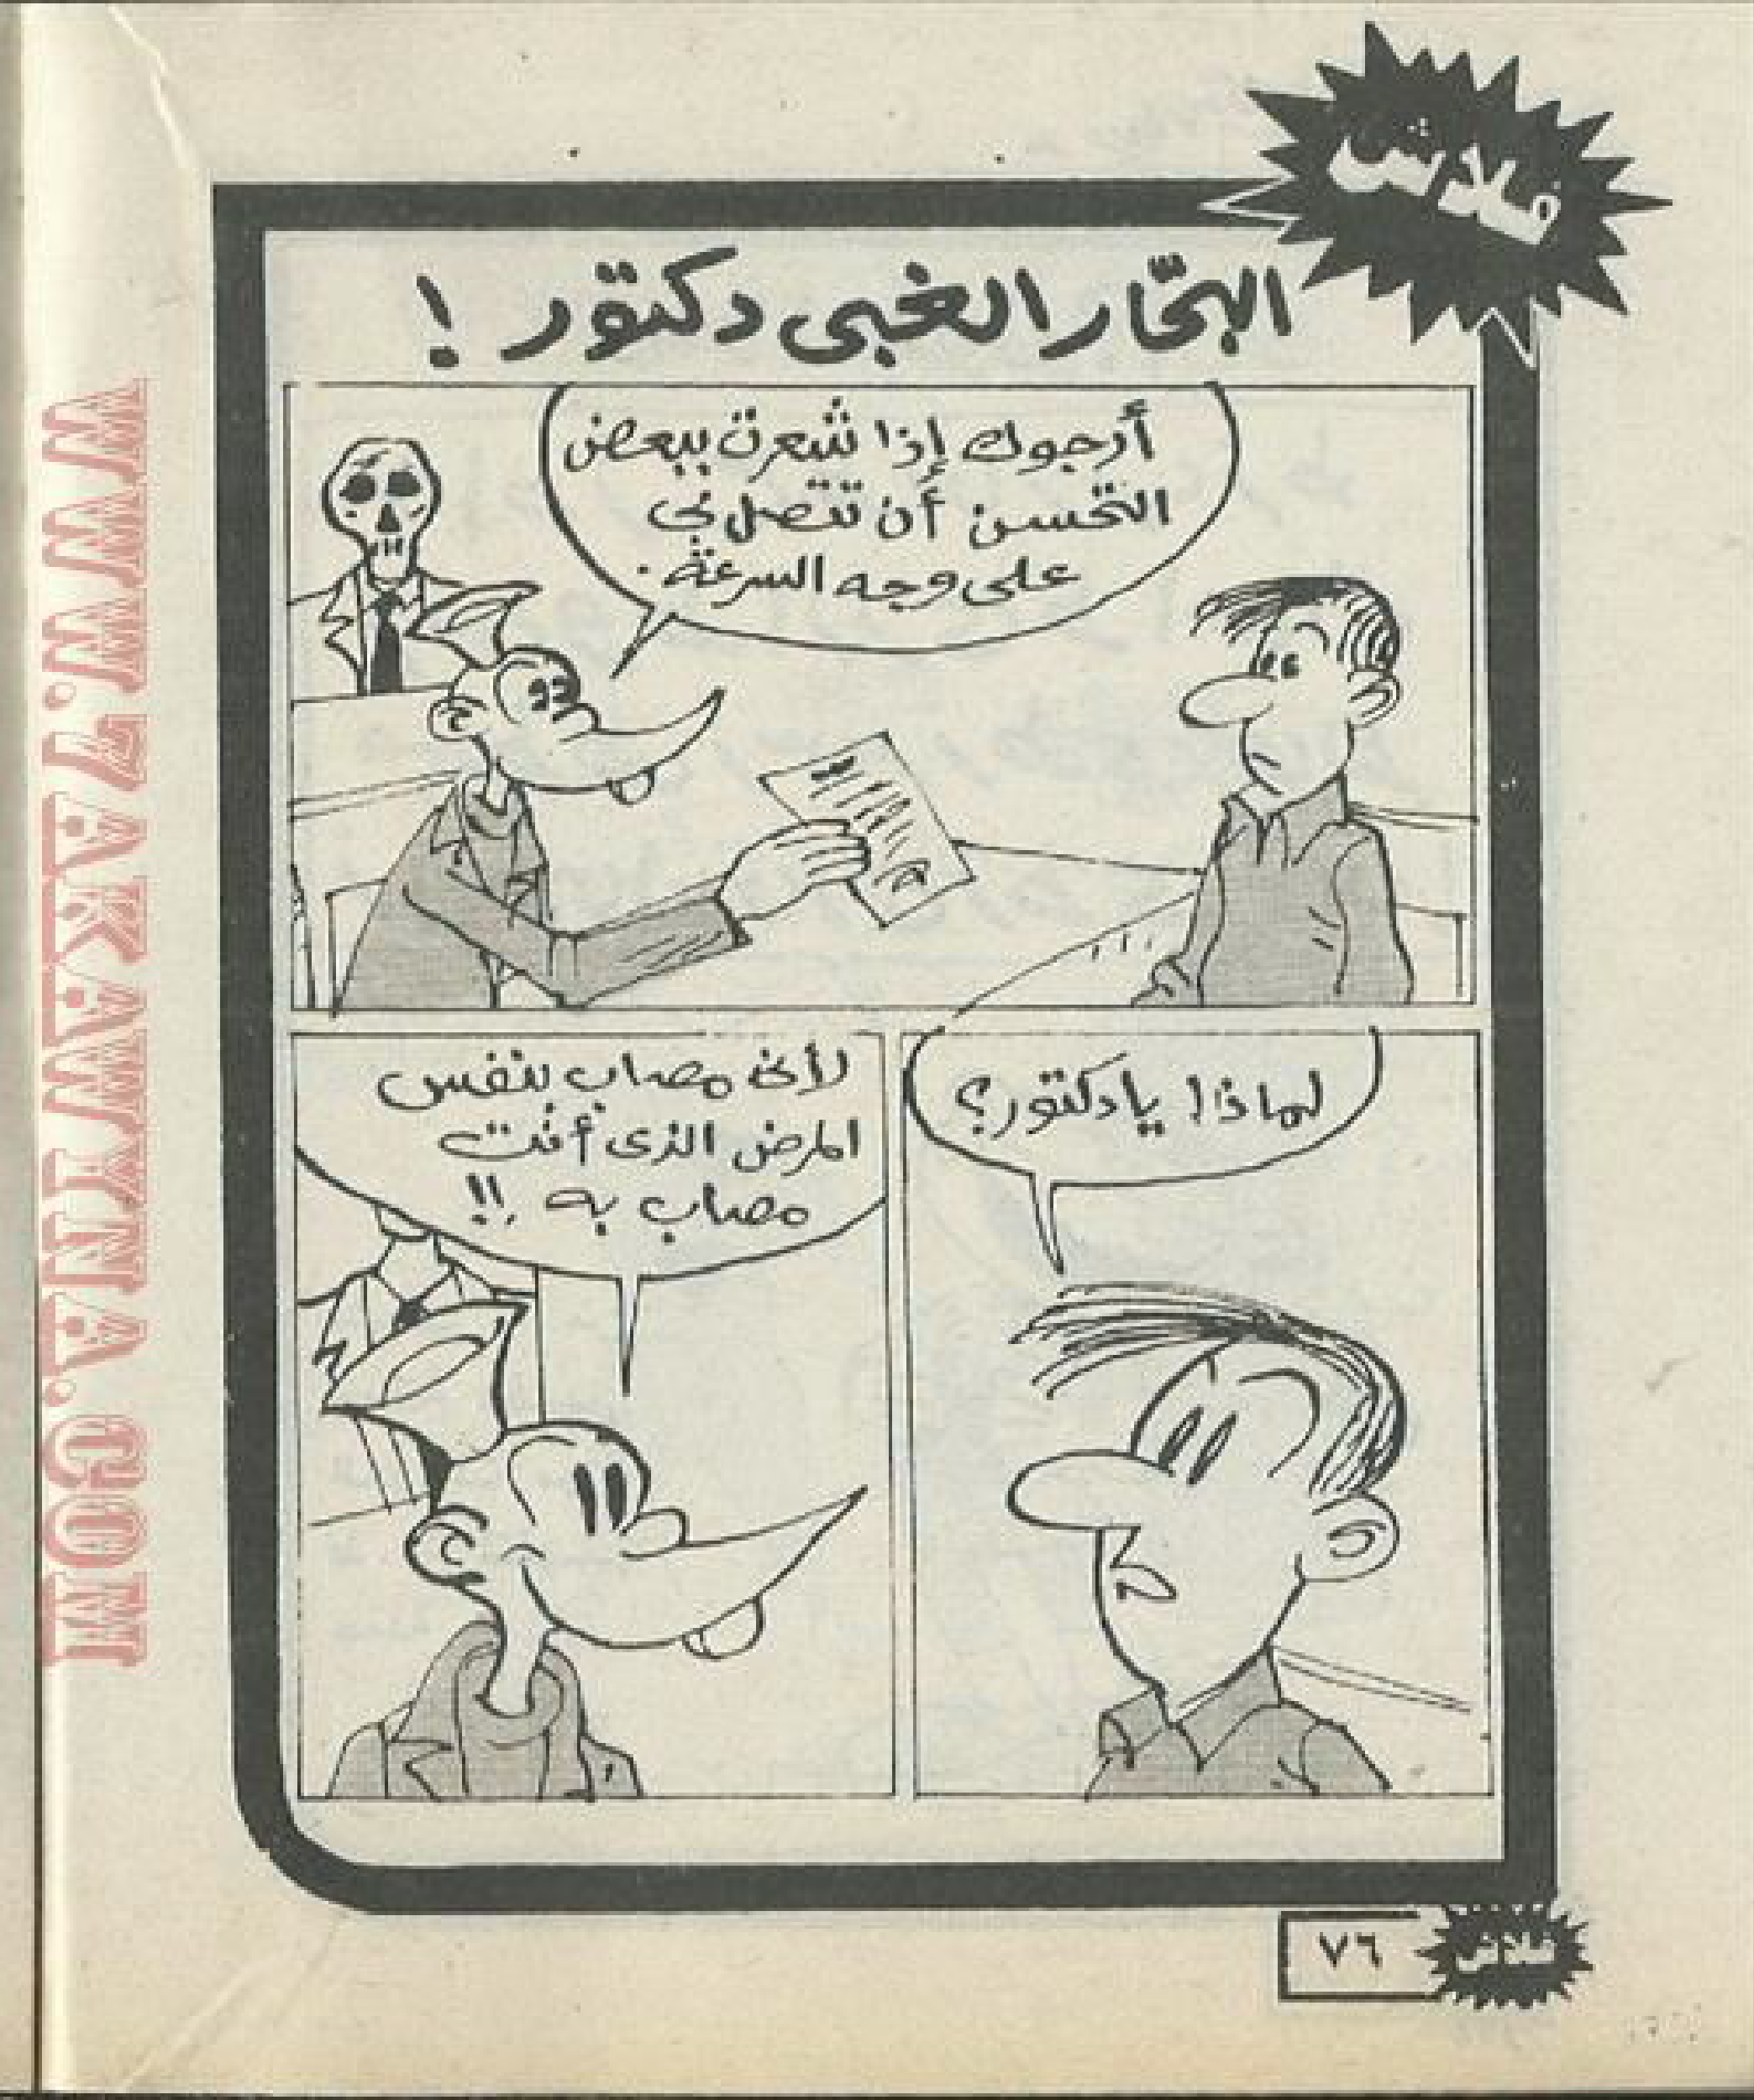 فلاش
البحّار الغبى دكتور !
أرجوك إذا شعرت ببعض
التحسن أن تتصل بى
على وجه السرعة .
لماذا يا دكتور؟
لأنى مصاب بنفس
المرض الذى أنت
مصاب به !!
٧٦
فلاش
WWW.7AKAWITNA.COM